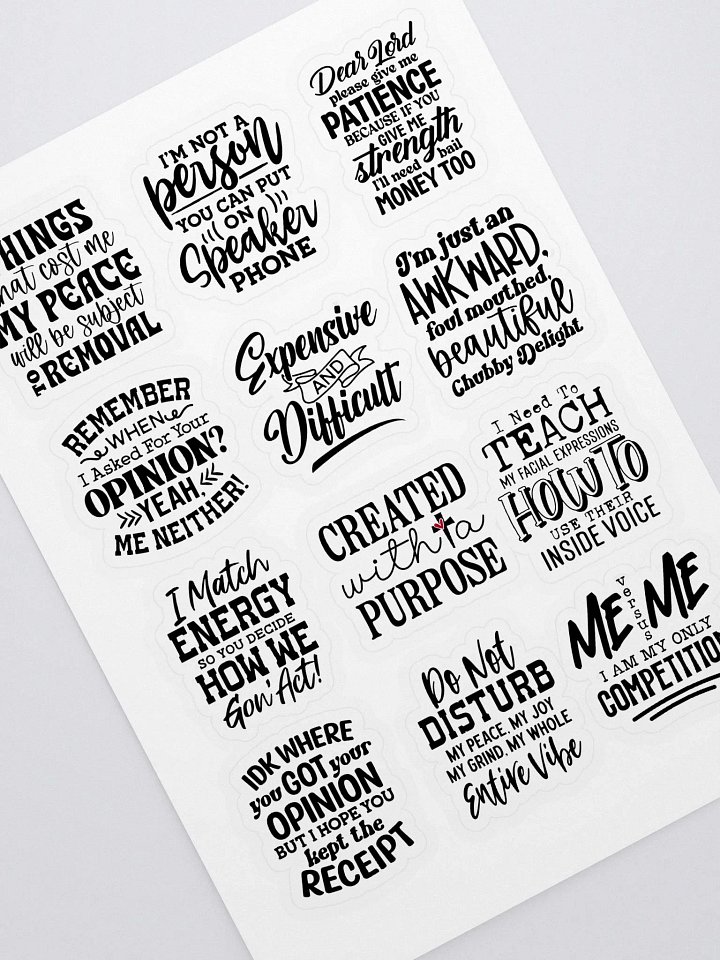 Dear Lord
please give me
PATIENCE
BECAUSE IF YOU
GIVE ME
strength
I'll need bail
MONEY TOO
I'M NOT A
person
YOU CAN PUT
((( ON )))
Speaker
PHONE
HINGS
hat cost me
MY PEACE
will be subject
TO REMOVAL
I'm just an
AWKWARD,
foul mouthed,
beautiful
Chubby Delight
Expensive
AND
Difficult
REMEMBER
WHEN
I Asked For Your
OPINION?
YEAH,
ME NEITHER!
I Need To
TEACH
MY FACIAL EXPRESSIONS
HOW TO
USE THEIR
INSIDE VOICE
CREATED
with a
PURPOSE
I Match
ENERGY
SO YOU DECIDE
HOW WE
Gon' Act!
ME versus ME
I AM MY ONLY
COMPETITIO
Do Not
DISTURB
MY PEACE, MY JOY
MY GRIND, MY WHOLE
Entire Vibe
IDK WHERE
you GOT your
OPINION
BUT I HOPE YOU
kept the
RECEIPT